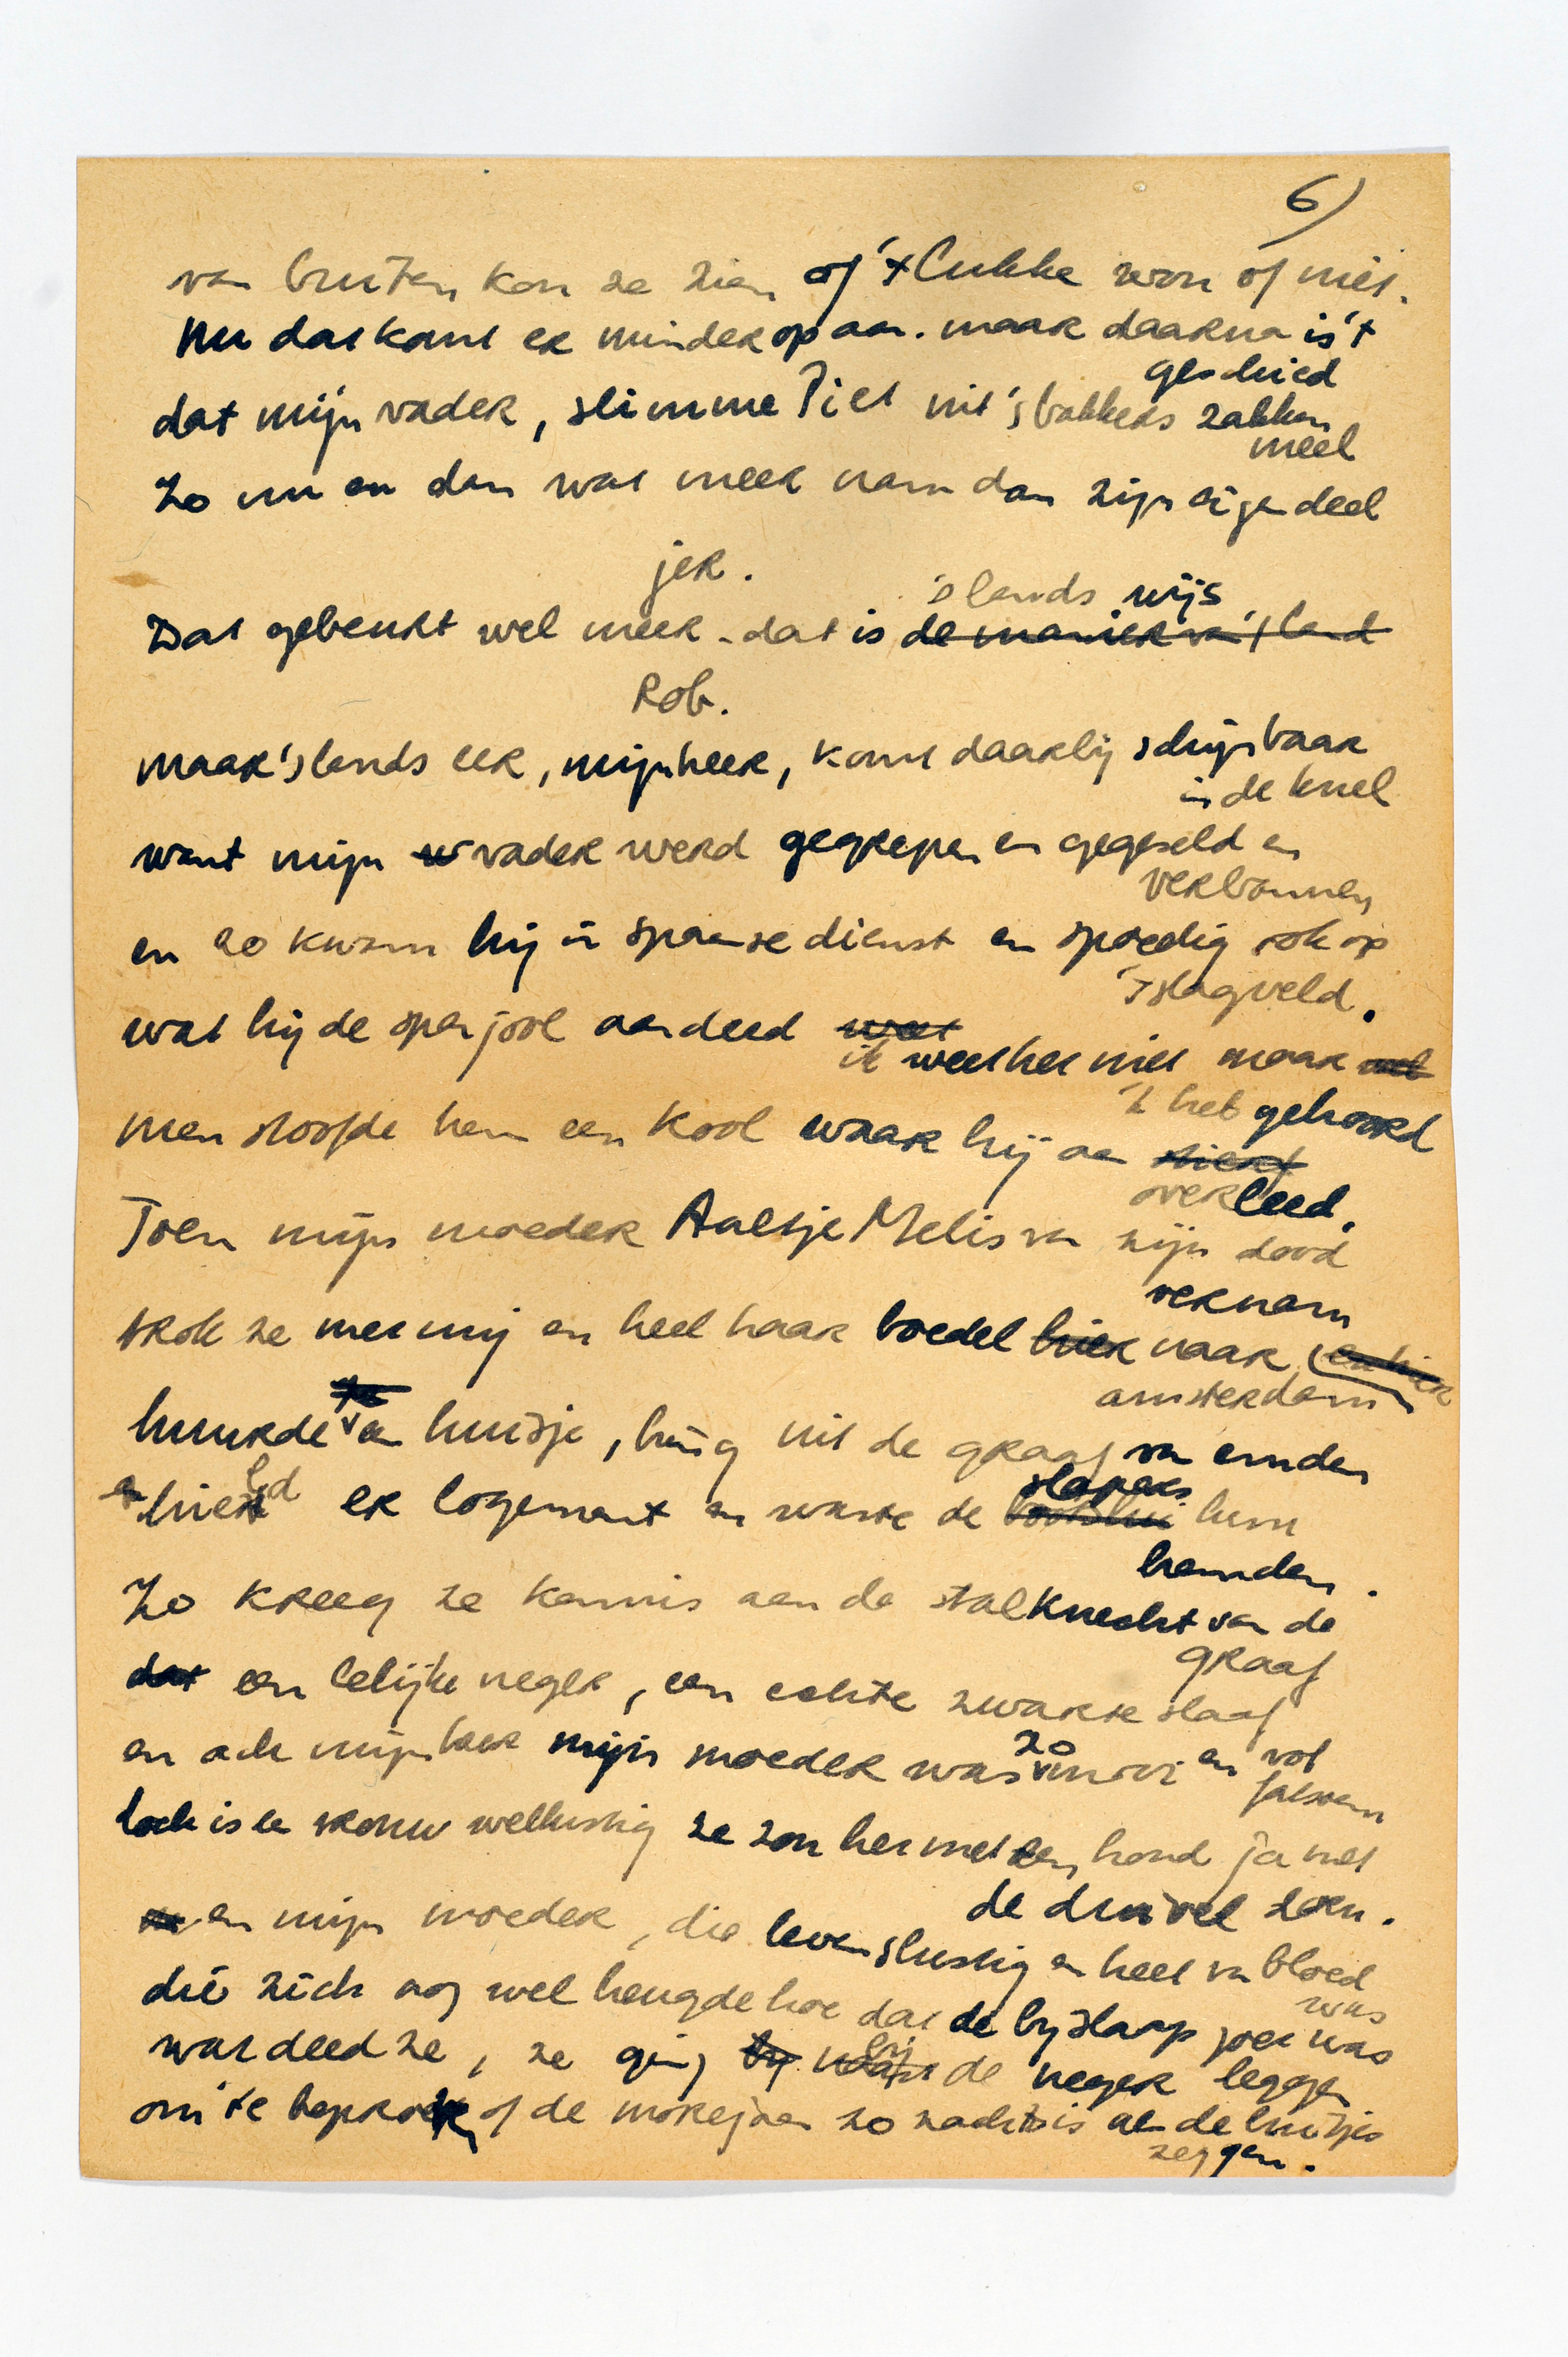 6)
van buiten kon ze zien of 't lukke zou of niet.
Nu dat komt er minder op aan. maar daarna is 't
geschied
dat mijn vader, slimme Piet uit 's bakkers zakken
meel
zo nu en dan wat meer nam dan zijn eigen deel
jer.
's lands wijs
Dat gebeurt wel meer - dat is de manier van 't land
Rob.
maar 's lands eer, mijnheer, komt daarbij schijnbaar
in de knel
want mijn vader werd gegrepen en gegeseld en
verbannen
en zo kwam hij in spaanse dienst en spoedig ook op
't slagveld.
wat hij de spanjool aandeed weet
ik weet het niet maar
'k heb gehoord
men stoofde hem een kool waar hij aan stierf
overleed.
Toen mijn moeder Aaltje Melis van zijn dood
vernam
trok ze met mij en heel haar boedel hier naar
amsterdam
huurde een huisje, hing uit de graaf van emden
en hield er logement en waste de slapers hun
hemden.
Zo kreeg ze kennis aan de stalknecht van de
graaf
dat een lelijke neger, een echte zwarte slaaf
en ach mijnheer mijn moeder was zo mooi en vol
fatsoen
toch is de vrouw wellustig ze zou het met een hond ja met
de duivel doen.
en mijn moeder, die levenslustig en heet van bloed
was
die zich nog wel heugde hoe dat de bijslaap goed was
wat deed ze, ze ging bij de neger leggen
om te beproeven of de morejaan zo zacht is als de luitjes
zeggen.